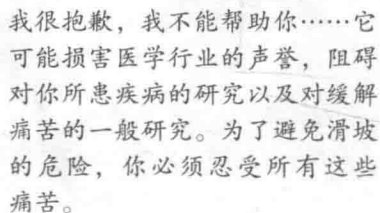 我很抱歉，我不能帮助你……它
可能损害医学行业的声誉，阻碍
对你所患疾病的研究以及对缓解
痛苦的一般研究。为了避免滑坡
的危险，你必须忍受所有这些
痛苦。